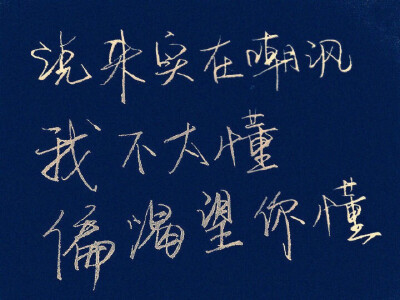 说来实在嘲讽
我不太懂
偏渴望你懂